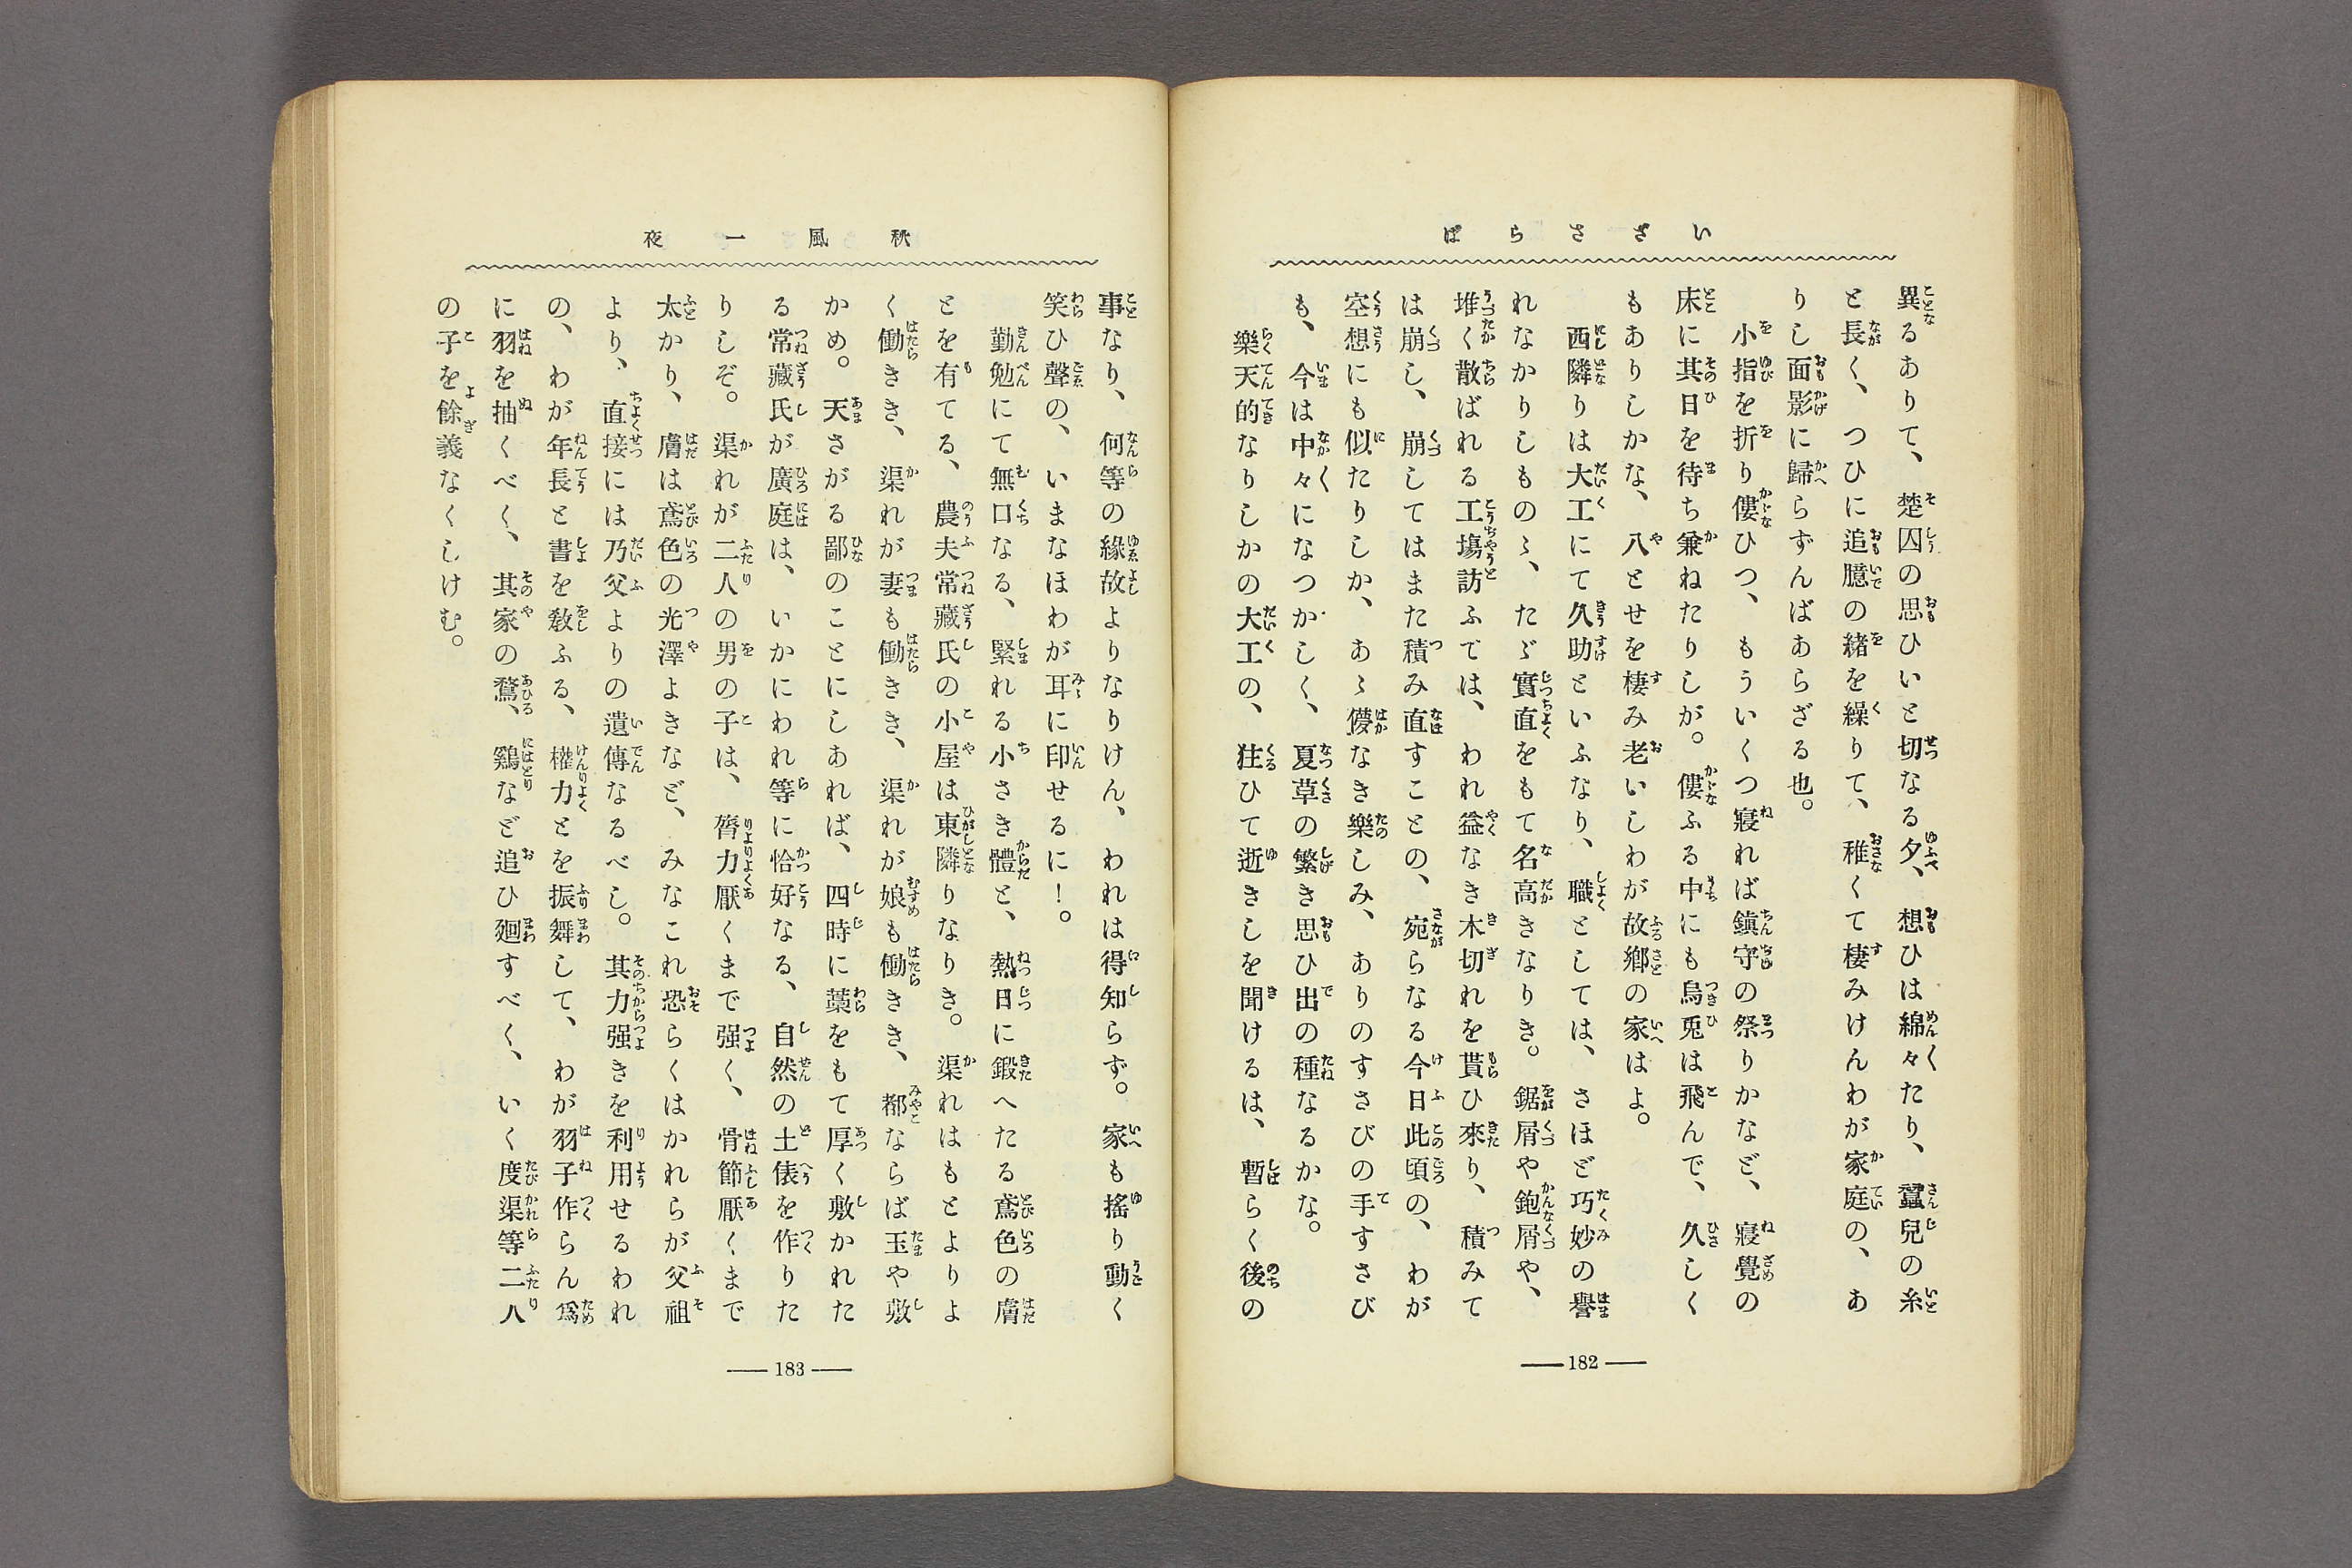 いざさらば
異るありて、楚囚の思ひいと切なる夕、想ひは綿々たり、蠶兒の糸
と長く、つひに追臆の緒を繰りて、稚くて棲みけんわが家庭の、あ
りし面影に歸らずんばあらざる也。
小指を折り僂ひつ、もういくつ寢れば鎭守の祭りかなど、寢覺の
床に其日を待ち兼ねたりしが。僂ふる中にも烏兎は飛んで、久しく
もありしかな、八とせを棲み老いしわが故鄕の家はよ。
西隣りは大工にて久助といふなり、職としては、さほど巧妙の譽
れなかりしものゝ、たゞ實直をもて名高きなりき。鋸屑や鉋屑や、
堆く散ばれる工塲訪ふでは、われ益なき木切れを貰ひ來り、積みて
は崩し、崩してはまた積み直すことの、宛らなる今日此頃の、わが
空想にも似たりしか、あゝ儚なき樂しみ、ありのすさびの手すさび
も、今は中々になつかしく、夏草の繁き思ひ出の種なるかな。
樂天的なりしかの大工の、狂ひて逝きしを聞けるは、暫らく後の
182
秋風一夜
事なり、何等の緣故よりなりけん、われは得知らず。家も搖り動く
笑ひ聲の、いまなほわが耳に印せるに！。
勤勉にて無口なる、緊れる小さき體と、熱日に鍛へたる鳶色の膚
とを有てる、農夫常藏氏の小屋は東隣りなりき。渠れはもとよりよ
く働きき、渠れが妻も働きき、渠れが娘も働きき、都ならば玉や敷
かめ。天さがる鄙のことにしあれば、四時に藁をもて厚く敷かれた
る常藏氏が廣庭は、いかにわれ等に恰好なる、自然の土俵を作りた
りしぞ。渠れが二人の男の子は、膂力厭くまで强く、骨節厭くまで
太かり、膚は鳶色の光澤よきなど、みなこれ恐らくはかれらが父祖
より、直接には乃父よりの遺傳なるべし。其力强きを利用せるわれ
の、わが年長と書を敎ふる、權力とを振舞して、わが羽子作らん爲
に羽を抽くべく、其家の鶩、鷄など追ひ廻すべく、いく度渠等二人
の子を餘義なくしけむ。
183